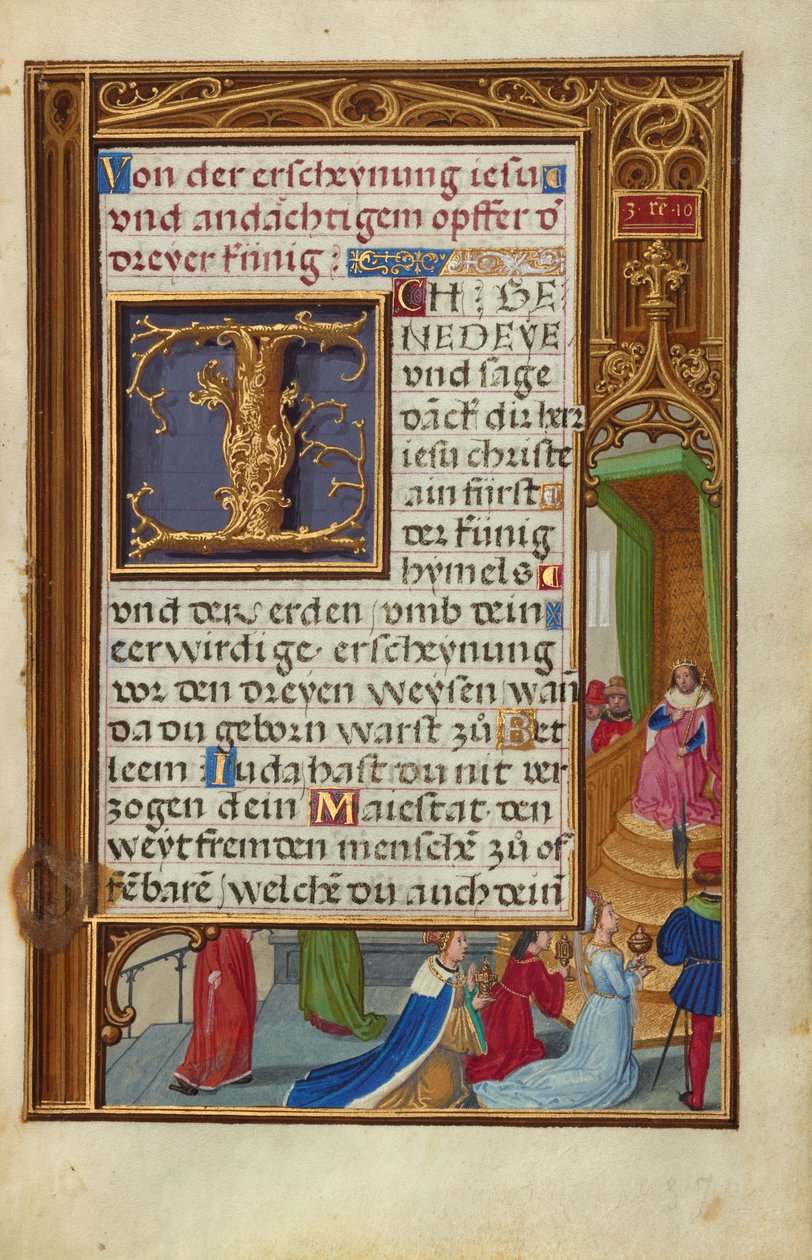 Von der erscheynung iesu
vnd andächtigem opffer d'
dreyer künig?
3 · rē · 10
I
CH? GE
NEDEYE
vnd sage
däck dir herr
iesu christe
ain fürst
der künig
hymels
vnd der erden / vmb dein
eerwirdige· erscheynung
vor den dreyen weysen / wañ
da du geborn warst zů Bet
leem Iuda hast du nit ver
zogen dein Maiestat· den
weyt fremden menschē zů of
fēbarē / welchē du auch dein
37